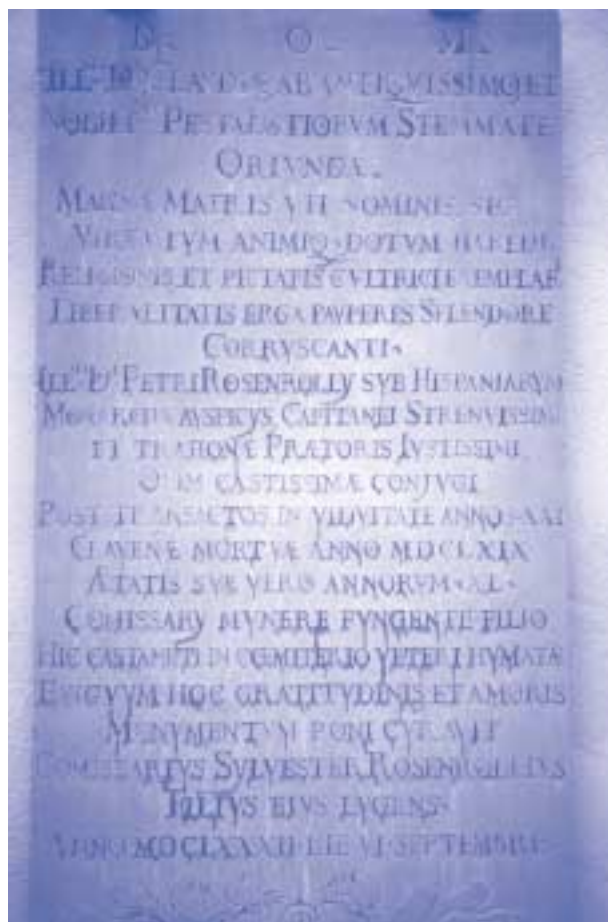 D. O. M.
ANTIQVISSIMO ET
PESTALOTIORVM STEMMATE
ORIVNDA.
MAGNÆ MATRIS VTI NOMINIS SIC
VIRTVTVM ANIMIQ DOTVM HÆREDI
RELIGIONIS ET PIETATIS CVLTRICI EXEMPLARI
LIBERALITATIS ERGA PAVPERES SPLENDORE
CORRVSCANTI.
ILL. D. PETRI ROSENROLLY SVB HISPANIARVM
AVSPICYS CAPITANEI STRENVISSIMI
ET PRÆTORIS IVSTISSIMI
CASTISSIMÆ CONJVGI
POST TRANSACTOS IN VIDVITATE ANNOS
CLAVENÆ MORTVÆ ANNO MDCLXIX
ÆTATIS SVÆ VERO ANNORVM XL.
COMISSARY MVNERE FVNGENTE FILIO
HIC IN COEMITERIO VETERI HVMATÆ
EXIGVVM HOC GRATITVDINIS ET AMORIS
MONVMENTVM PONI CVRAVIT
COMISSARIVS SYLVESTER ROSENROLLIVS
FILIVS EJVS LVGENS.
ANNO MDCLXXXII DIE VI SEPTEMBRIS